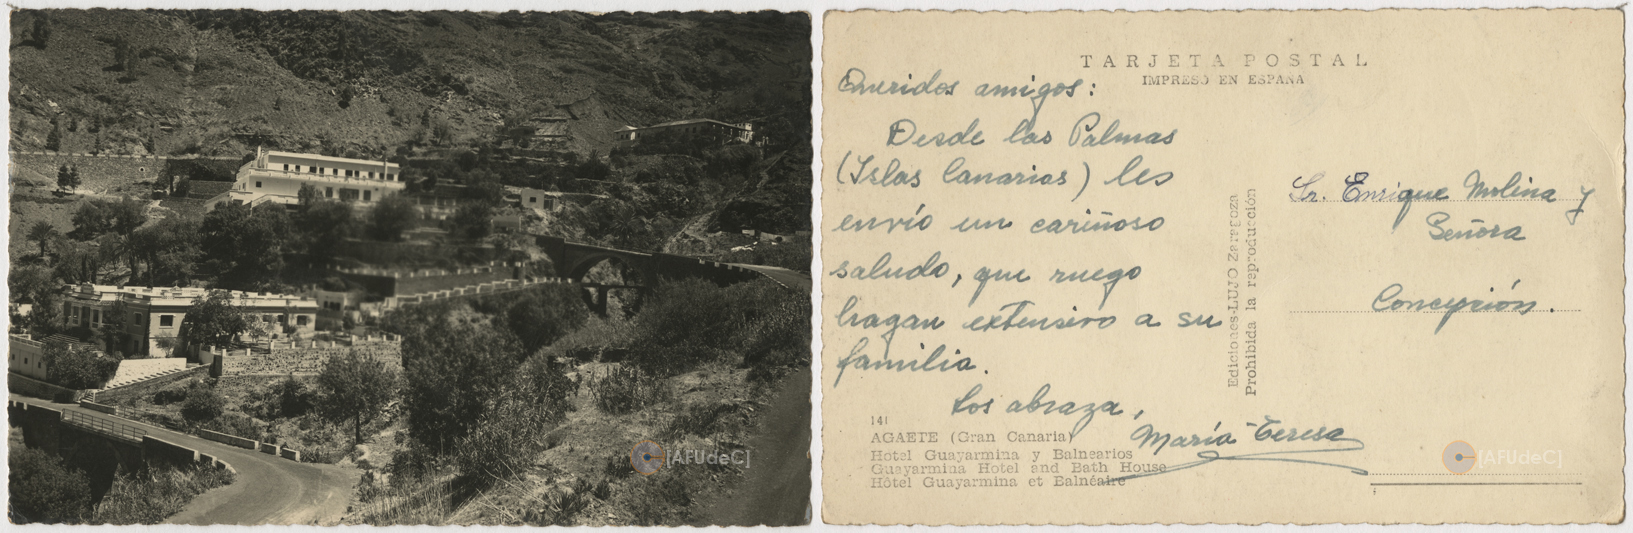 TARJETA POSTAL
IMPRESO EN ESPAÑA
Queridos amigos:
Desde las Palmas
(Islas Canarias) les
envío un cariñoso
saludo, que ruego
hagan extensivo a su
familia.
Los abraza,
María Teresa
Sr. Enrique Molina y
Señora
Concepción.
Ediciones-LUJO Zaragoza
Prohibida la reproducción
141
AGAETE (Gran Canaria)
Hotel Guayarmina y Balnearios
Guayarmina Hotel and Bath House
Hôtel Guayarmina et Balnéaire
[AFUdeC]
[AFUdeC]